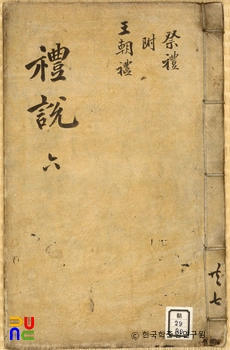 祭禮
附
王朝禮
禮說 六
共七
29
ⓒ 한국학중앙연구원